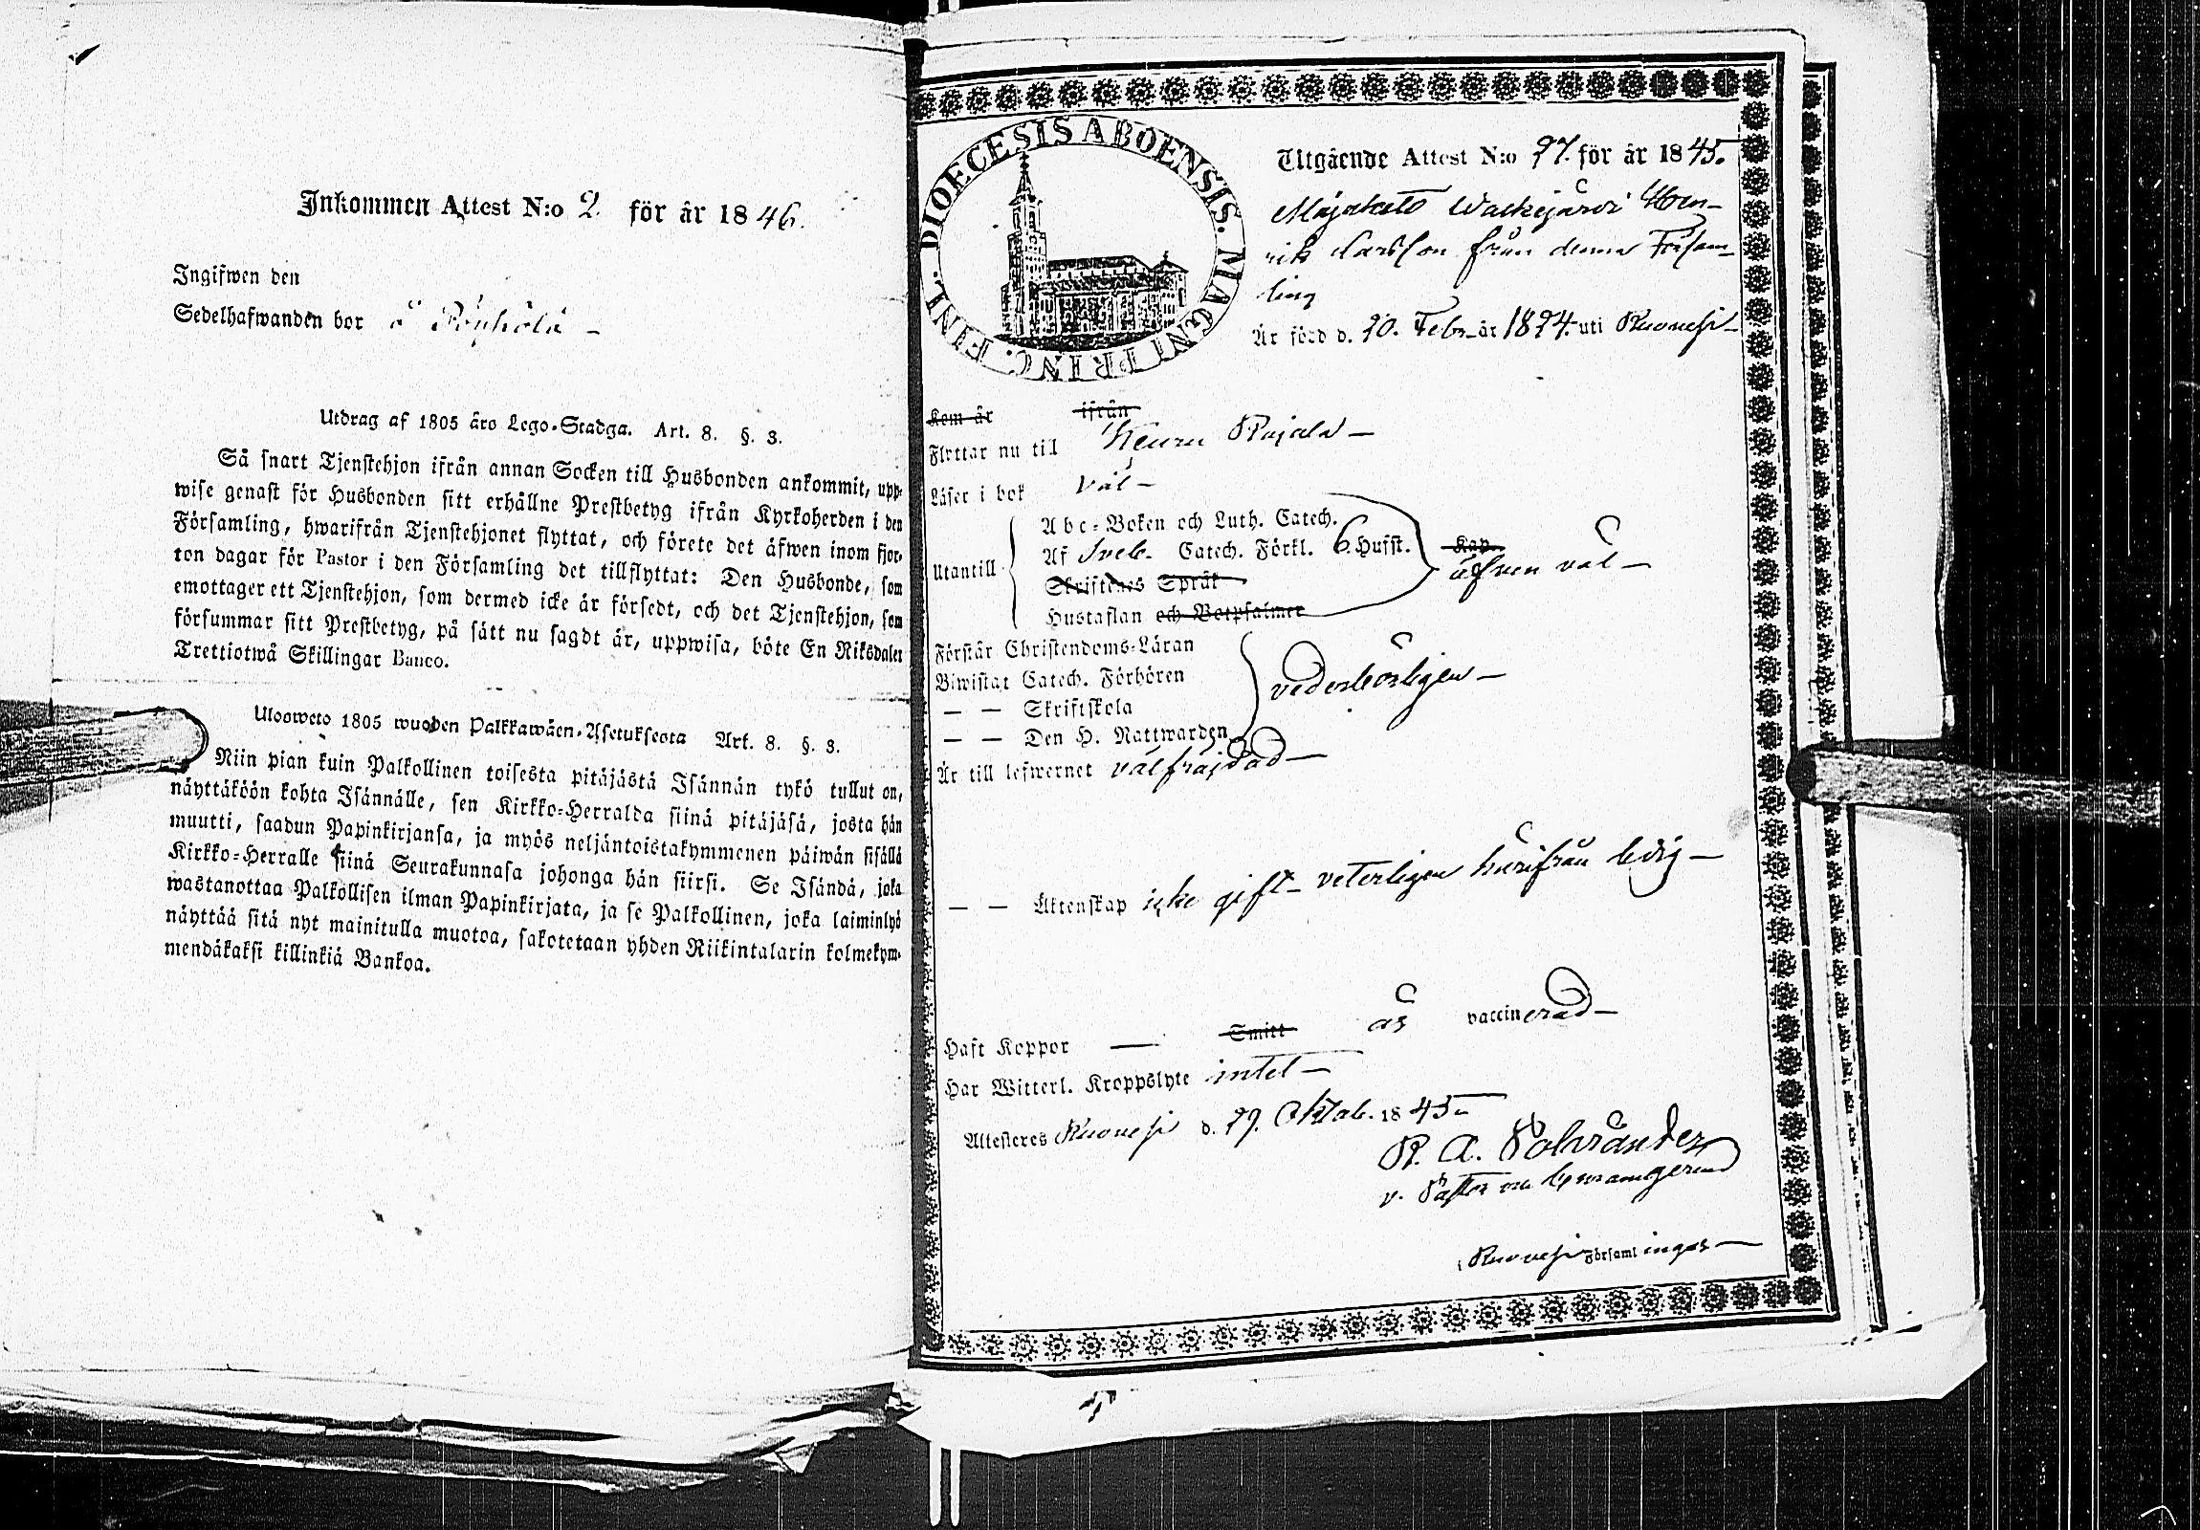 Inkommen Attest N:o 2. för år 1846.
Ingifwen den
Sedelhafwanden bor å Pöyhölä –
Utdrag af 1805 års Lego-Stadga. Art. 8. §. 3.
Så snart Tjenstehjon ifrån annan Socken till Husbonden ankommit, upp-
wise genast för Husbonden sitt erhållne Prestbetyg ifrån Kyrkoherden i den
Församling, hwarifrån Tjenstehjonet flyttat, och förete det äfwen inom fjor-
ton dagar för Pastor i den Församling det tillflyttat: Den Husbonde, som
emottager ett Tjenstehjon, som dermed icke är försedt, och det Tjenstehjon, som
försummar sitt Prestbetyg, på sätt nu sagdt är, uppwisa, böte En Riksdaler
Trettiotwå Skillingar Banco.
Ulosweto 1805 wuoden Palkkawäen-Asetuksesta Art. 8. §. 3.
Niin pian kuin Palkollinen toisesta pitäjästä Isännän tykö tullut on,
näyttäköön kohta Isännälle, sen Kirkko-Herralda siinä pitäjäsä, josta hän
muutti, saadun Papinkirjansa, ja myös neljäntoistakymmenen päiwän sisällä
Kirkko-Herralle siinä Seurakunnasa johonga hän siirsi. Se Isändä, joka
wastanottaa Palkollisen ilman Papinkirjata, ja se Palkollinen, joka laiminlyö
näyttää sitä nyt mainitulla muotoa, sakotetaan yhden Riikintalarin kolmekym-
mendäkaksi killinkiä Bankoa.
DIOECESIS ABOENSIS. MAGNI PRINC. FINL.
Utgående Attest N:o 27. för år 1845.
Mäjakato Walkejärvi Hen-
rik Carlsson från denna Försam-
ling
Är född d. 20. Febr. år 1824. uti Ruovesi –
Kom år ifrån
Flyttar nu till Keuru Rajala –
Läser i bok väl –
Abc-Boken och Luth. Catech.
Utantill Af Sveb. Catech. Förkl. 6. Hufst. Kap.
Skriftenes Språk äfven väl –
Hustaflan och Botpsalmer
Förstår Christendoms-Läran
Biwistat Catech. Förhören vederbörligen –
— — Skriftskola
— — Den H. Nattwarden
Är till lefwernet välfräjdad –
— — Äktenskap icke gift – veterligen härifrån ledig –
Haft Koppor — Smitt är vaccinerad –
Har Witterl. Kroppslyte intet –
Attesteras Ruovesi d. 29. Oktob. 1845.
R. A. Polviander
v. Pastor
Ruovesi Församlingar –